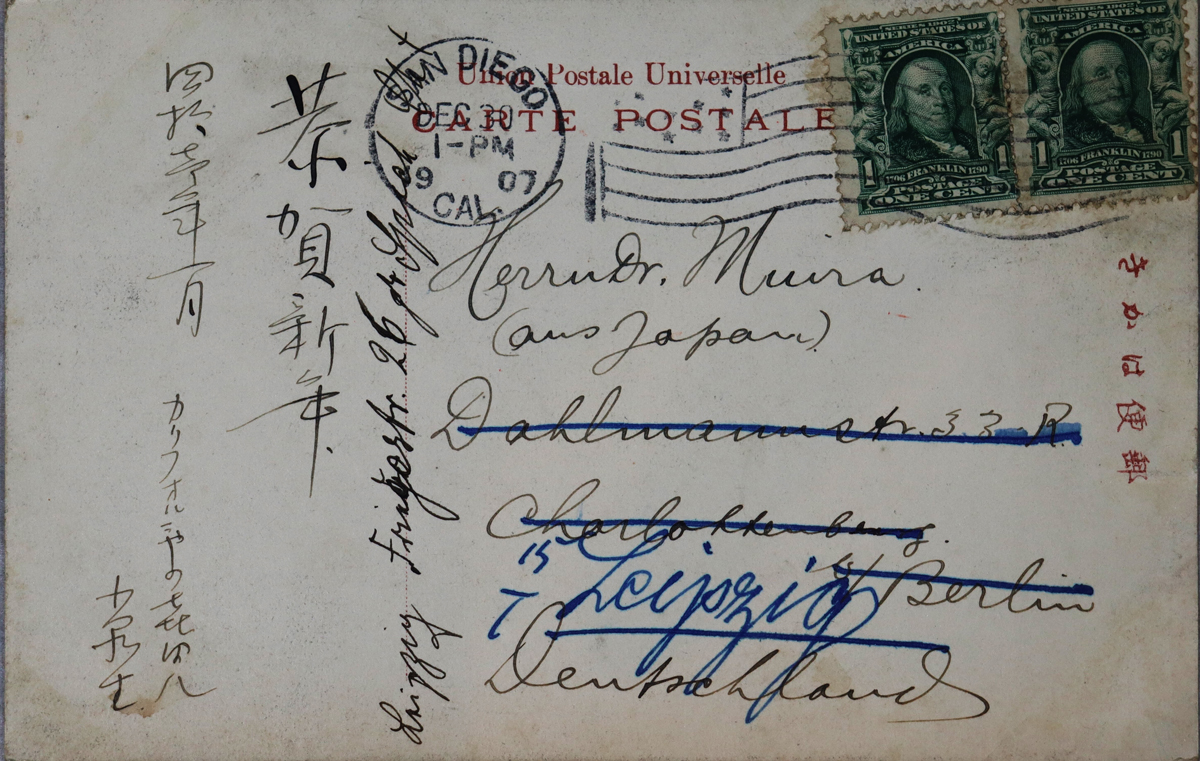 Union Postale Universelle
CARTE POSTALE
SAN DIEGO
DEC 30
1-PM
1907
CAL.
SERIES 1902
UNITED STATES OF
AMERICA
1706 FRANKLIN 1790
1 POSTAGE 1
ONE CENT
SERIES 1902
UNITED STATES OF
AMERICA
1706 FRANKLIN 1790
1 POSTAGE 1
ONE CENT
きかは便郵
Herrn Dr. Muira
(aus Japan)
Dahlmannstr. 33 R.
Charlottenburg.
Berlin
Deutschland
15/7 Leipzig
Leipzig
26
恭賀新年
四拾壱年一月
カリフオルニヤ